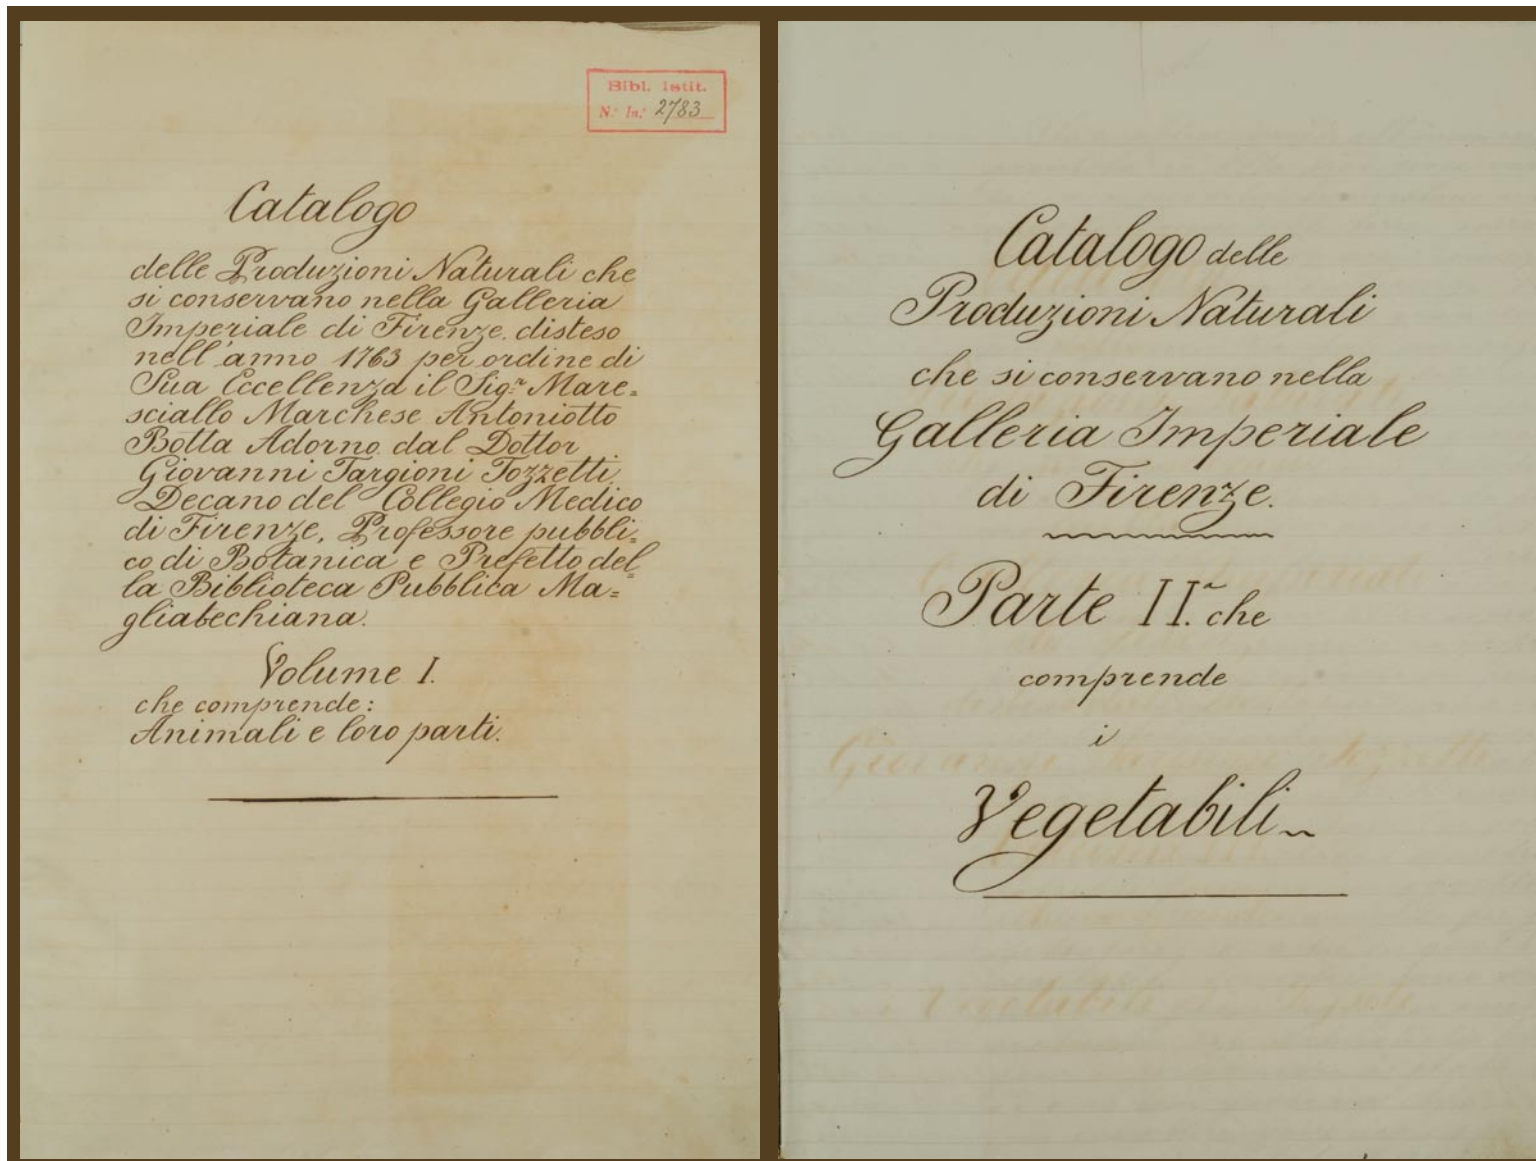 Bibl. Istit.
N.º In.º 2783
Catalogo
delle Produzioni Naturali che
si conservano nella Galleria
Imperiale di Firenze. disteso
nell'anno 1763 per ordine di
Sua Eccellenza il Sig.r Mare=
sciallo Marchese Antoniotto
Botta Adorno dal Dottor
Giovanni Targioni Tozzetti.
Decano del Collegio Medico
di Firenze, Professore pubbli=
co di Botanica e Prefetto del=
la Biblioteca Pubblica Ma=
gliabechiana.
Volume I.
che comprende:
Animali e loro parti.
Catalogo delle
Produzioni Naturali
che si conservano nella
Galleria Imperiale
di Firenze.
Parte II.a che
comprende
i
Vegetabili